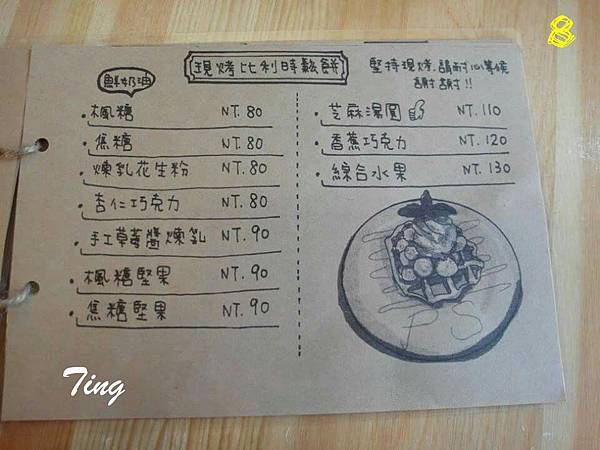 8
現烤比利時鬆餅
堅持現烤.請耐心等候
謝謝!!
鮮奶油
.楓糖 NT.80
.焦糖 NT.80
.煉乳花生粉 NT.80
.杏仁巧克力 NT.80
.手工草莓醬煉乳 NT.90
.楓糖堅果 NT.90
.焦糖堅果 NT.90
.芝麻湯圓 NT.110
.香蕉巧克力 NT.120
.綜合水果 NT.130
PS
Ting